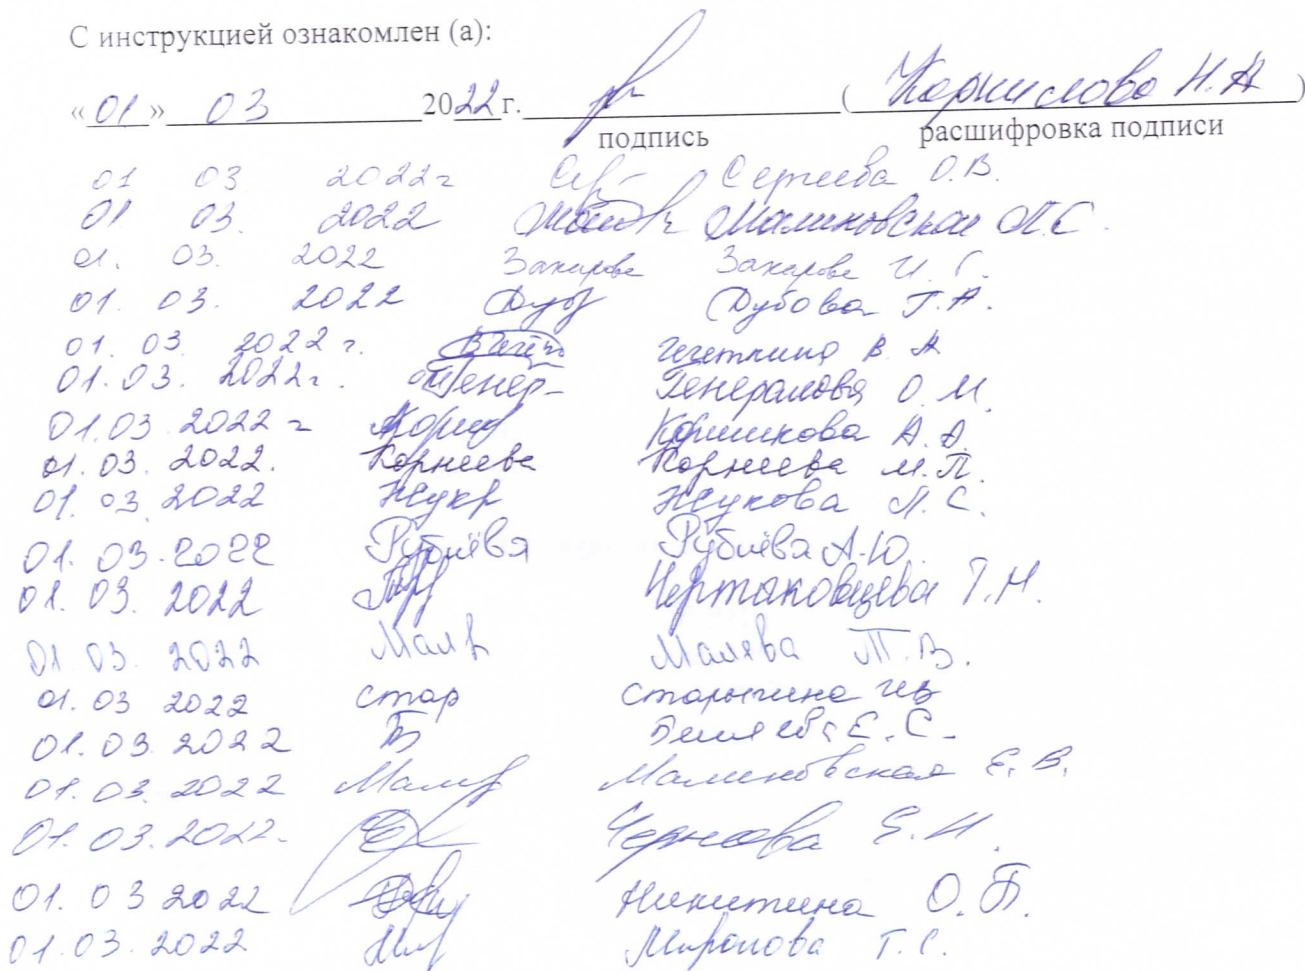 С инструкцией ознакомлен (а):
«01» 03 2022 г. (Корнилова Н.А)
подпись расшифровка подписи
01 03 2022г Сергеева О.В.
01 03. 2022 Малиновская Л.С.
01. 03. 2022 Захарова Захарова И.Г.
01. 03. 2022 Дуб Дубова Г.А.
01. 03. 2022 г. В. А
01.03. 2022г. Генер- Генералова О.М.
01.03 2022г Кориш Коришкова А.А.
01.03. 2022. Корнеева Корнеева М.П.
01.03 2022 Жук Жукова Л.С.
01. 03.2022 Рублёва Рублёва А.Ю.
01. 03. 2022 Чертаковцева Т.Н.
01 03. 2022 Мал Малява Т.В.
01.03 2022 стар старыгина
01.03 2022 Б Беляева Е.С.
01.03. 2022 Малин Малиновская Е.В.
01.03.2022. Чернова Е.И.
01.03 2022 Никитина О.П.
01.03.2022 Миронова Т.С.